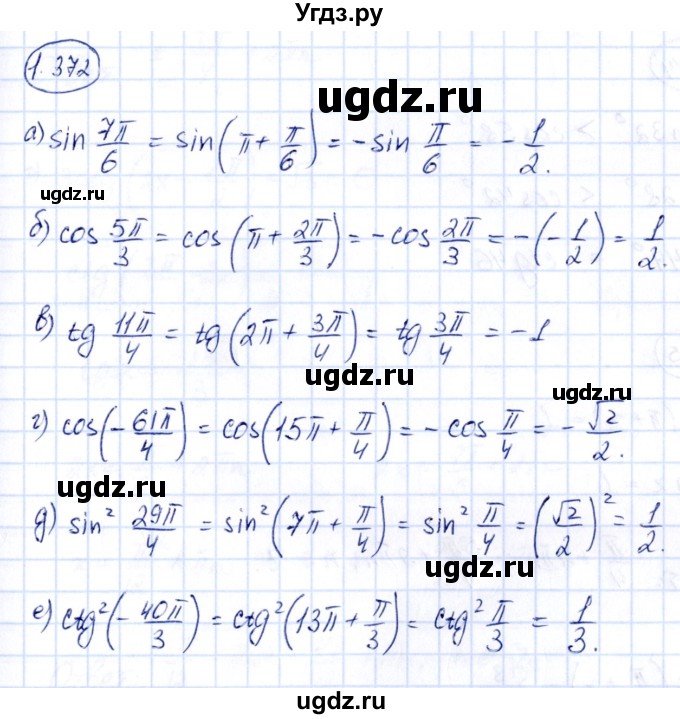 Угдз.ру
1.372
ugdz.ru
а) sin 7π/6 = sin(π + π/6) = -sin π/6 = -1/2.
ugdz.ru
ugdz.ru
б) cos 5π/3 = cos(π + 2π/3) = -cos 2π/3 = -(-1/2) = 1/2.
в) tg 11π/4 = tg(2π + 3π/4) = tg 3π/4 = -1
ugdz.ru
ugdz.ru
г) cos(-61π/4) = cos(15π + π/4) = -cos π/4 = -√2/2.
ugdz.ru
д) sin² 29π/4 = sin²(7π + π/4) = sin² π/4 = (√2/2)² = 1/2.
ugdz.ru
е) ctg²(-40π/3) = ctg²(13π + π/3) = ctg² π/3 = 1/3.
ugdz.ru
ugdz.ru